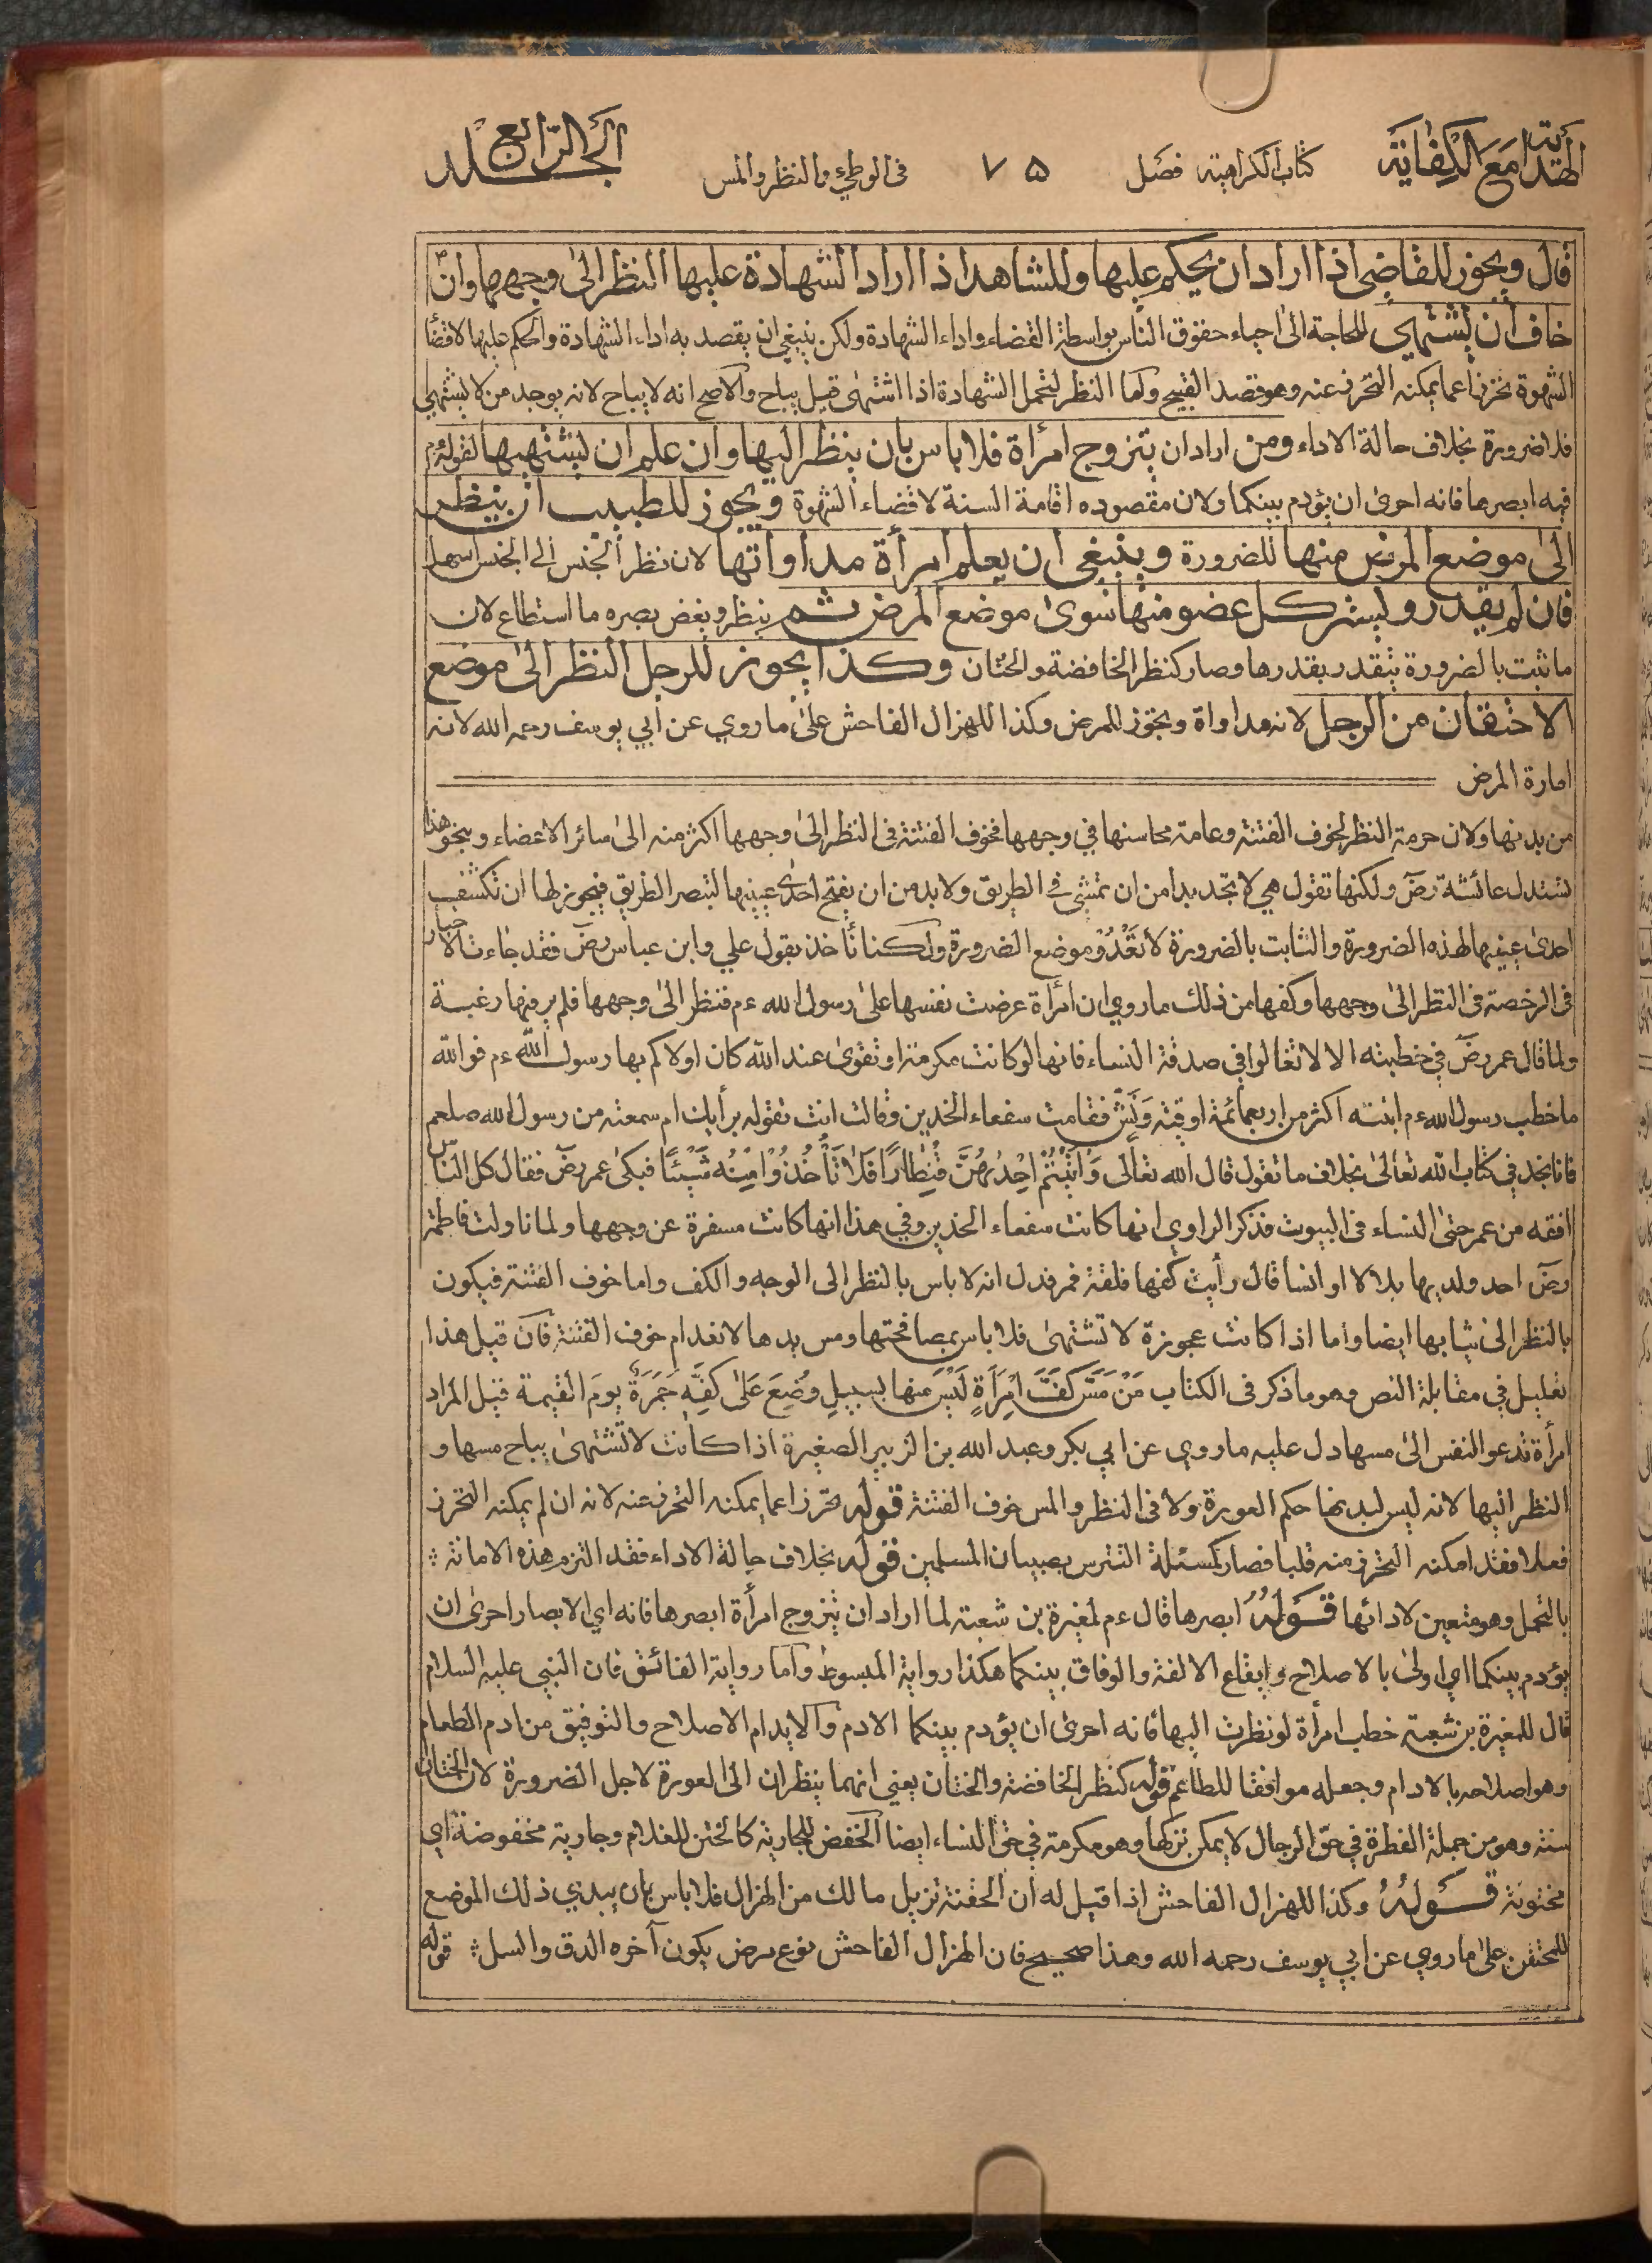 الهداية مع الكفاية كتاب الكراهية فصل ٧٥ في الوطئ والنظر والمس الجلد الرابع
قال ويجوز للقاضي اذا اراد ان يحكم عليها وللشاهد اذا اراد الشهادة عليها النظر الىٰ وجهها وان
خاف ان يشتهي للحاجة الىٰ احياء حقوق الناس بواسطة القضاء واداء الشهادة ولكن ينبغي ان يقصد به اداء الشهادة والحكم عليها لا قضاء
الشهوة تحرزا عما يمكنه التحرز عنه وهو قصد القبيح واما النظر لتحمل الشهادة اذا اشتهىٰ قيل يباح والاصح انه لا يباح لانه يوجد من لا يشتهي
فلا ضرورة بخلاف حالة الاداء ومن اراد ان يتزوج امرأة فلا باس بان ينظر اليها وان علم ان يشتهيها لقوله ءم
فيه ابصرها فانه احرىٰ ان يؤدم بينكما ولان مقصوده اقامة السنة لا قضاء الشهوة ويجوز للطبيب ان ينظر
الىٰ موضع المرض منها للضرورة وينبغي ان يعلم امرأة مداواتها لان نظر الجنس الى الجنس اسهل
فان لم يقدر و ليستر كل عضو منها سوىٰ موضع المرض ثم ينظر ويغض بصره ما استطاع لان
ما ثبت بالضرورة يتقدر بقدرها وصار كنظر الخافضة والختان وكذا يجوز للرجل النظر الىٰ موضع
الاحتقان من الرجل لانه مداواة ويجوز للمرض وكذا للهزال الفاحش علىٰ ما روي عن ابي يوسف رحمه الله لانه
امارة المرض
من بدنها ولان حرمة النظر لخوف الفتنة وعامة محاسنها في وجهها فخوف الفتنة في النظر الىٰ وجهها اكثر منه الىٰ سائر الاعضاء وبنحو هذا
تستدل عائشة رض ولكنها تقول هي لا تجد بدا من ان تمشي في الطريق ولا بد من ان يفتح احدىٰ عينيها لتبصر الطريق فيجوز لها ان تكشف
احدىٰ عينيها لهذه الضرورة والثابت بالضرورة لا تعْدُوْ موضع الضرورة ولكنا نأخذ بقول علي وابن عباس رض فقد جاءت الاخبار
في الرخصة في النظر الىٰ وجهها وكفها من ذلك ما روي ان امرأة عرضت نفسها علىٰ رسول الله ءم فنظر الىٰ وجهها فلم ير فيها رغبة
ولما قال عمر رض في خطبته الا لا تغالوا في صدقة النساء فانها لو كانت مكرمة او تقوىٰ عند الله كان اولاكم بها رسول الله ءم فوالله
ما خطب رسول الله ءم ابنته اكثر من اربعمائة اوقية وَنَشّ فقامت سفعاء الخدين وقالت انت تقوله برأيك ام سمعته من رسول الله صلعم
فانا نجد في كتاب الله تعالىٰ بخلاف ما تقول قال الله تعالىٰ وَاٰتَيْتُمْ اِحْدٰىهُنَّ قِنْطَارًا فَلَا تَأْخُذُوْا مِنْهُ شَيْئًا فبكىٰ عمر رض فقال كل الناس
افقه من عمر حتىٰ النساء في البيوت فذكر الراوي انها كانت سفعاء الخدين وفي هذا انها كانت مسفرة عن وجهها ولما ناولت فاطمة
رض احد ولديها بلالا او انسا قال رأيت كفها فلقة قمر فدل انه لا باس بالنظر الى الوجه والكف واما خوف الفتنة فيكون
بالنظر الىٰ ثيابها ايضا واما اذا كانت عجوزة لا تشتهىٰ فلا باس بمصافحتها ومس يدها لانعدام خوف الفتنة فان قيل هذا
تعليل في مقابلة النص وهو ما ذكر في الكتاب مَنْ مَسَّ كَفَّ اِمْرَأَةٍ لَيْسَ مِنها بسبيلٍ وُضِعَ عَلىٰ كَفِّهِ جَمْرَةٌ يومَ القيمة قيل المراد
امرأة تدعو النفس الىٰ مسها دل عليه ما روي عن ابي بكر وعبد الله بن الزبير الصغيرة اذا كانت لا تشتهىٰ يباح مسها و
النظر اليها لانه ليس لبدنها حكم العورة ولا في النظر والمس خوف الفتنة قوله تحرزا عما يمكنه التحرز عنه لانه ان لم يمكنه التحرز
فعلا فقد امكنه التحرز منه قلبا فصار كمسئلة التترس بصبيان المسلمين قوله بخلاف حالة الاداء فقد التزم هذه الامانة
بالتحمل وهو متعين لادائها قوله ابصرها قال ءم لمغيرة بن شعبة لما اراد ان يتزوج امرأة ابصرها فانه اي الابصار احرىٰ ان
يؤدم بينكما اي اولىٰ بالاصلاح وايقاع الالفة والوفاق بينكما هكذا رواية المبسوط واما رواية الفائق فان النبي عليه السلام
قال للمغيرة بن شعبة خطب امرأة لو نظرت اليها فانه احرىٰ ان يؤدم بينكما الادم والايدام الاصلاح والتوفيق من ادم الطعام
وهو اصلاحه بالادام وجعله موافقا للطاعم قوله كنظر الخافضة والختان يعني انهما ينظران الى العورة لاجل الضرورة لان الختان
سنة وهو من جملة الفطرة في حق الرجال لا يمكن تركها وهو مكرمة في حق النساء ايضا الخفض للجارية كالختن للغلام وجارية مخفوضة اي
مختونة قوله وكذا للهزال الفاحش اذا قيل له ان الحقنة تزيل مالك من الهزال فلا باس بان يبدي ذلك الموضع
للمحتقن علىٰ ما روي عن ابي يوسف رحمه الله وهذا صحيح فان الهزال الفاحش نوع مرض يكون آخره الدق والسل قوله